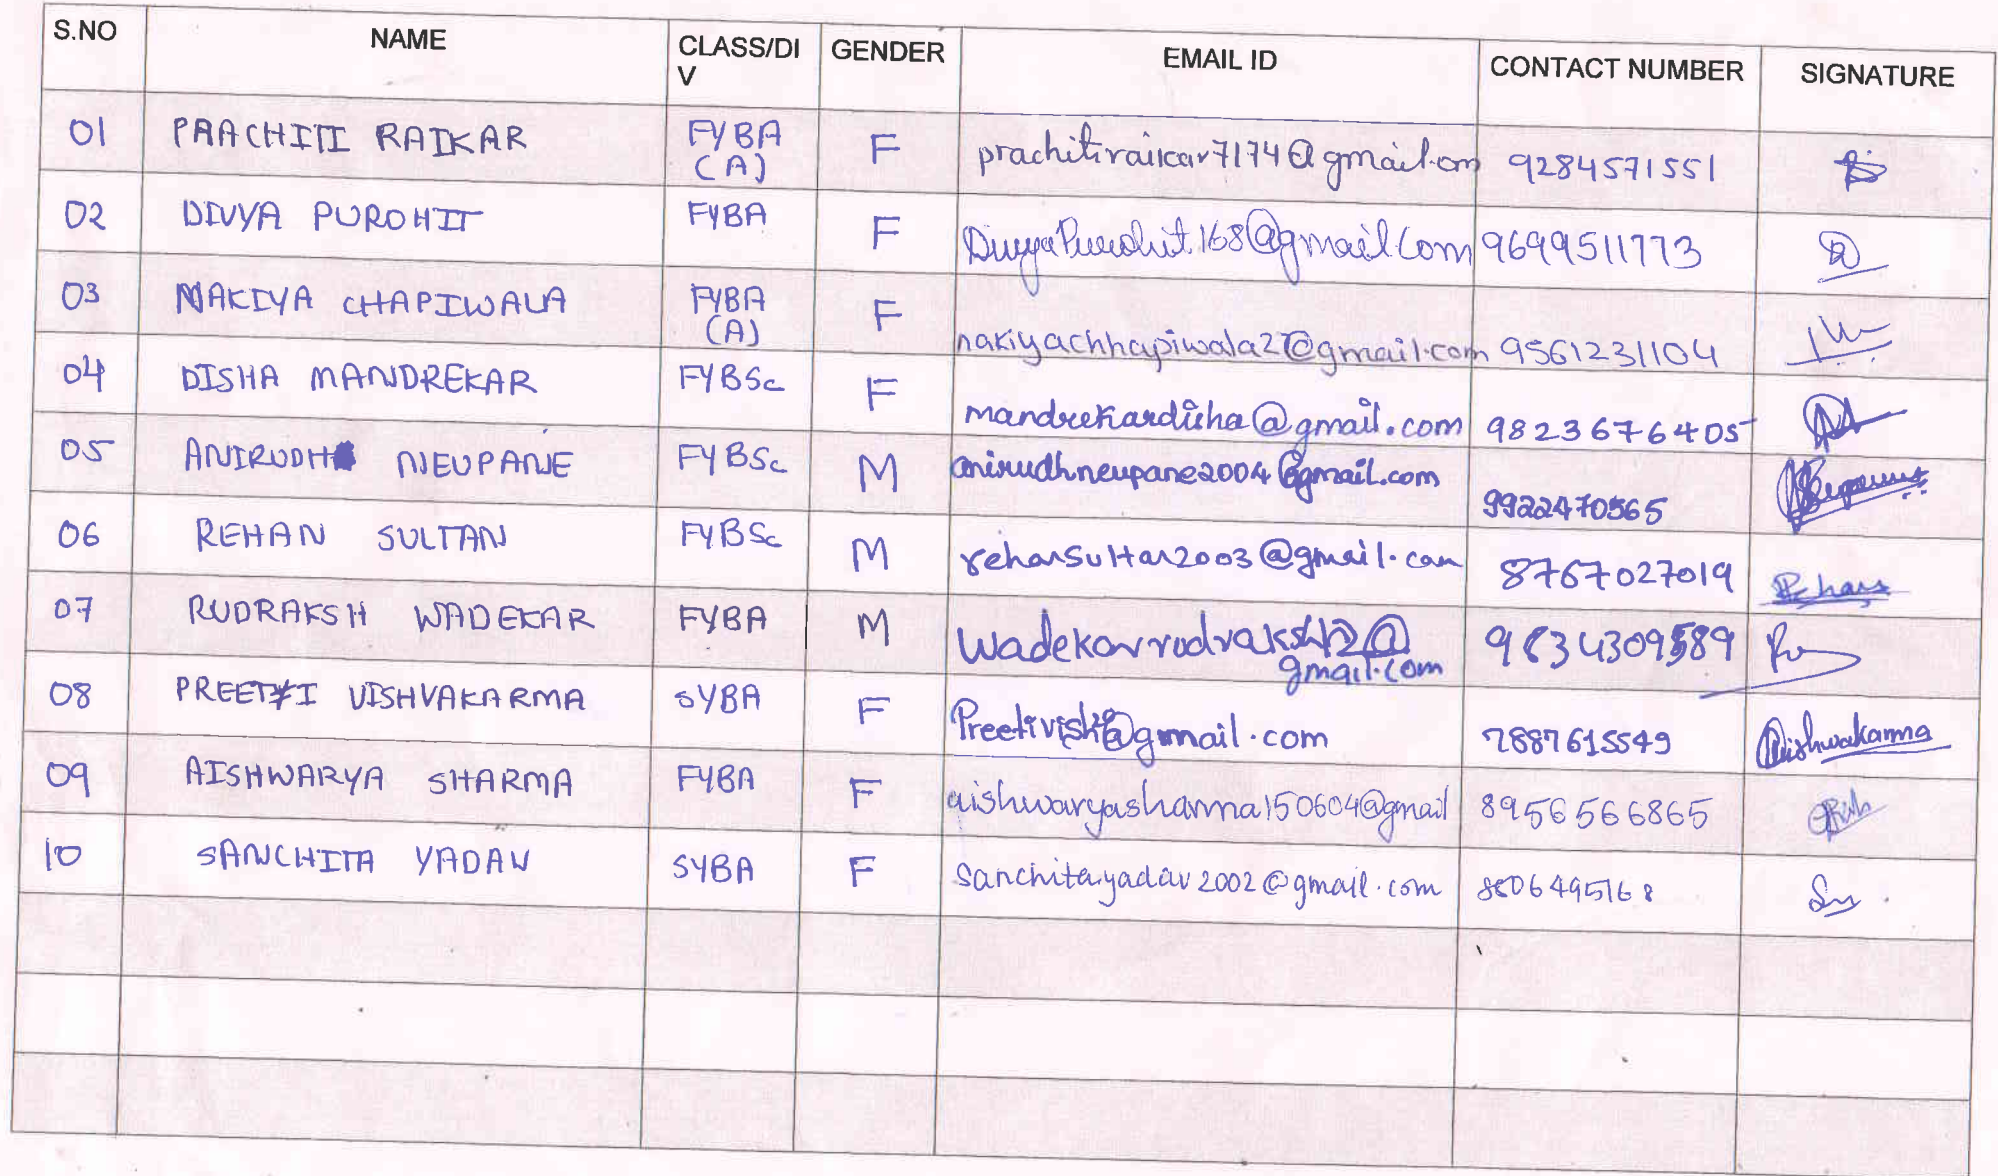 S.NO NAME CLASS/DIV GENDER EMAIL ID CONTACT NUMBER SIGNATURE
01 PRACHITI RAIKAR FYBA (A) F prachitiraikar7174@gmail.com 9284571551
02 DIVYA PUROHIT FYBA F DivyaPurohit168@gmail.com 9699511773
03 NAKIYA CHAPIWALA FYBA (A) F nakiyachhapiwala27@gmail.com 9561231104
04 DISHA MANDREKAR FYBSc F mandrekardisha@gmail.com 9823676405
05 ANIRUDH NEUPANE FYBSc M anirudhneupane2004@gmail.com 9922470565
06 REHAN SULTAN FYBSc M rehansultan2003@gmail.com 8767027019 Rehans
07 RUDRAKSH WADEKAR FYBA M wadekarrudraksh12@gmail.com 9834309589
08 PREETI VISHVAKARMA SYBA F @gmail.com 7887615549
09 AISHWARYA SHARMA FYBA F aishwaryasharma150604@gmail 8956566865
10 SANCHITA YADAV SYBA F Sanchita.yadav2002@gmail.com